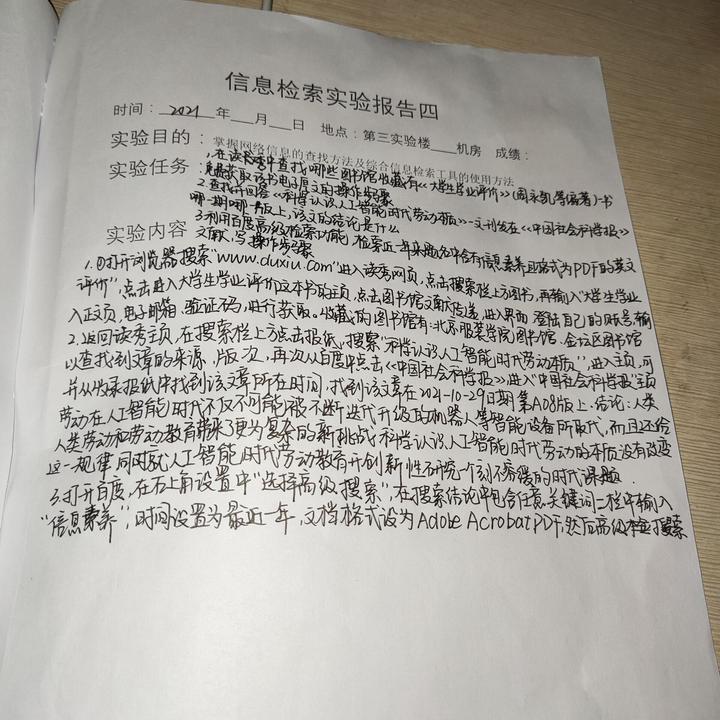 信息检索实验报告四
时间：2021年___月___日 地点：第三实验楼___机房 成绩：
实验目的：掌握网络信息的查找方法及综合信息检索工具的使用方法
实验任务：1.在读秀中查找哪些图书馆收藏有《大学生学业评价》(周永凯等编著)一书
免费获取该书电子原文的操作步骤
2.查找并回答《科学认识人工智能时代劳动本质》一文刊发在《中国社会科学报》
哪一期哪一版上，该文的结论是什么
3.利用百度高级检索功能，检索近一年来题名中含有信息素养且格式为PDF的英文
文献，写操作步骤
实验内容
1.①打开浏览器搜索"www.duxiu.com"进入读秀网页，点击搜索栏上方图书，再输入"大学生学业
评价"，点击进入大学生学业评价这本书的主页，点击图书馆文献传递，进入界面，登陆自己的账号，输
入正文页，电子邮箱，验证码，进行获取。收藏的图书馆有：北京服装学院图书馆，金坛区图书馆
2.返回读秀主页，在搜索栏上方点击报纸，搜索"科学认识人工智能时代劳动本质"，进入主页，可
以查找到文章的来源，版次，再次从百度中点击《中国社会科学报》，进入中国社会科学报主页
并从收录报纸中找到该文章所在时间，找到该文章在2021-10-29日期第A08版上.结论：人类
劳动在人工智能时代不仅不可能被不断迭代升级的机器人等智能设备所取代，而且还给
人类劳动和劳动教育带来了更为复杂的新挑战，科学认识人工智能时代劳动的本质没有改变
这一规律，同时就人工智能时代劳动教育开创新性研究一个刻不容缓的时代课题.
3.打开百度，在右上角设置中"选择高级搜索"，在搜索结论中包含任意关键词一栏中输入
"信息素养"，时间设置为最近一年，文档格式设为Adobe Acrobat PDF，然后高级搜索